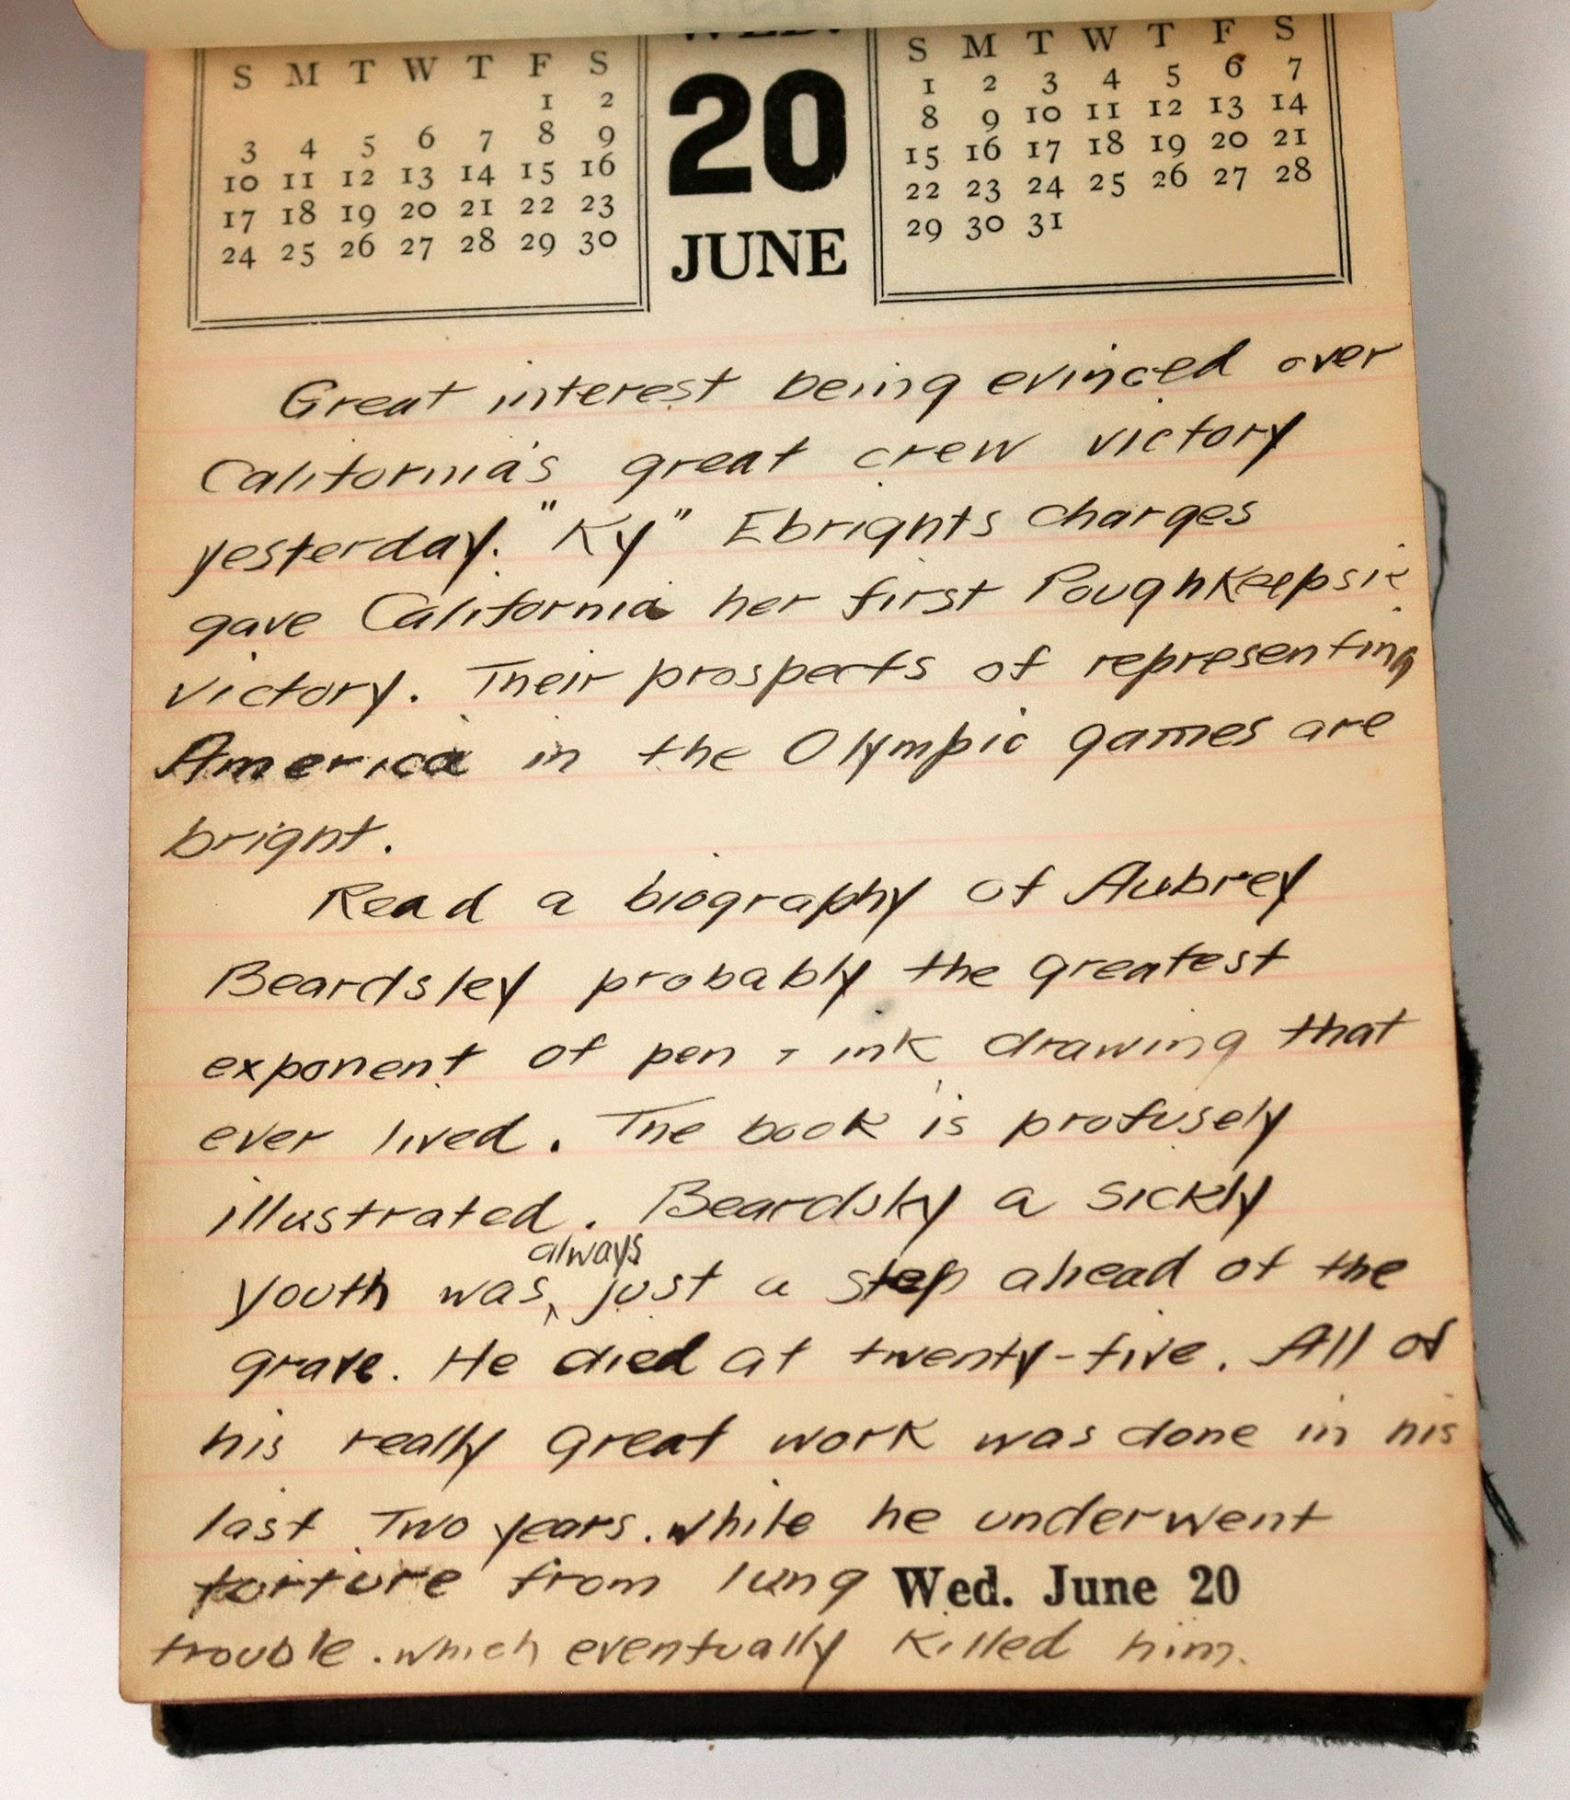 WED.
S M T W T F S
1 2
3 4 5 6 7 8 9
10 11 12 13 14 15 16
17 18 19 20 21 22 23
24 25 26 27 28 29 30
20
JUNE
S M T W T F S
1 2 3 4 5 6 7
8 9 10 11 12 13 14
15 16 17 18 19 20 21
22 23 24 25 26 27 28
29 30 31
Great interest being evinced over
California's great crew victory
yesterday. "Ky" Ebrights charges
gave California her first Poughkeepsie
victory. Their prospects of representing
America in the Olympic games are
bright.
Read a biography of Aubrey
Beardsley probably the greatest
exponent of pen + ink drawing that
ever lived. The book is profusely
illustrated. Beardsky a sickly
always
youth was ^ just a step ahead of the
grave. He died at twenty-five. All of
his really great work was done in his
last Two years. while he underwent
torture from lung
Wed. June 20
trouble. which eventually killed him.